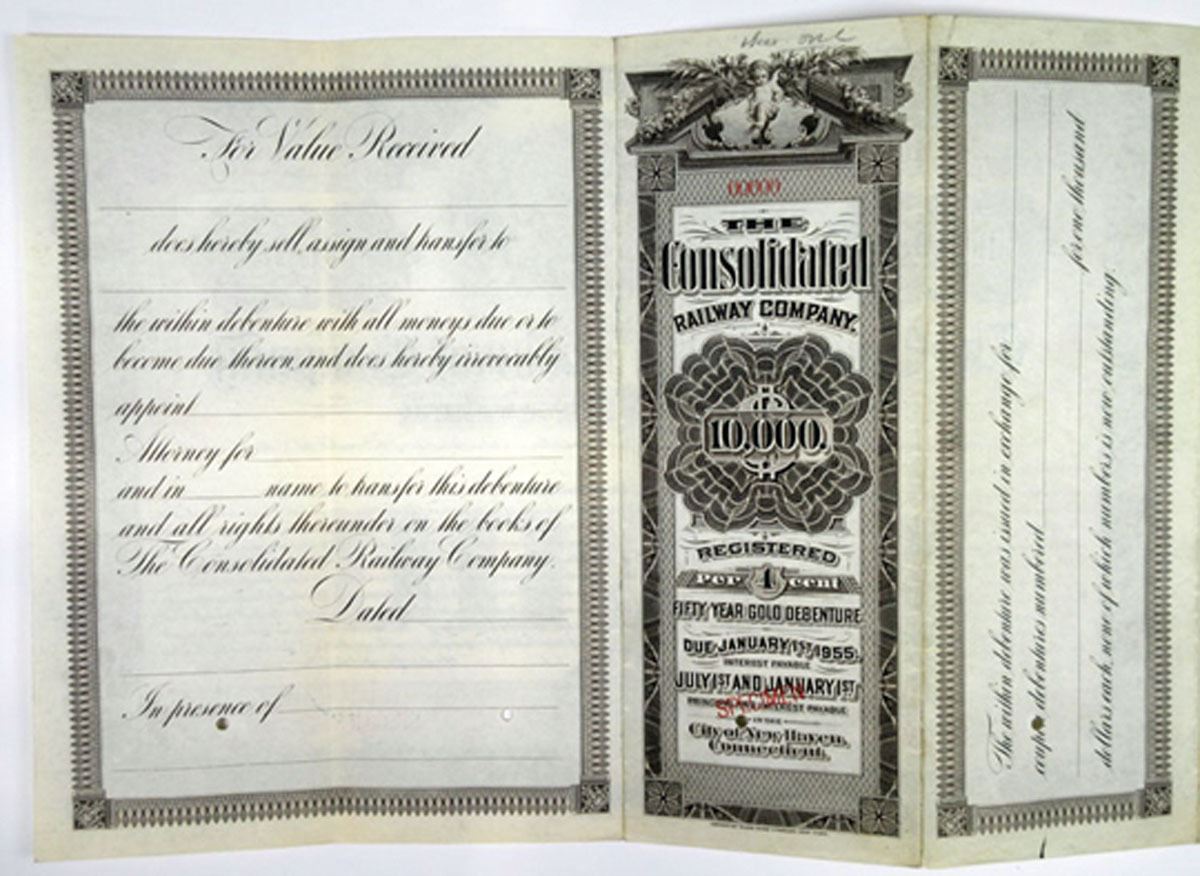 For Value Received
does hereby sell, assign and transfer to
the within debenture with all moneys due or to
become due thereon, and does hereby irrevocably
appoint
Attorney for
and in name to transfer this debenture
and all rights thereunder on the books of
The Consolidated Railway Company.
Dated
In presence of
00000
THE
Consolidated
RAILWAY COMPANY.
$
10,000.
REGISTERED
Per 4 cent
FIFTY YEAR GOLD DEBENTURE
DUE JANUARY 1ST 1955.
INTEREST PAYABLE
JULY 1ST AND JANUARY 1ST
SPECIMEN
INTEREST PAYABLE
IN THE
City of New Haven,
Connecticut.
The within debenture was issued in exchange for
coupon debentures numbered for one thousand
dollars each, none of which numbers is now outstanding.